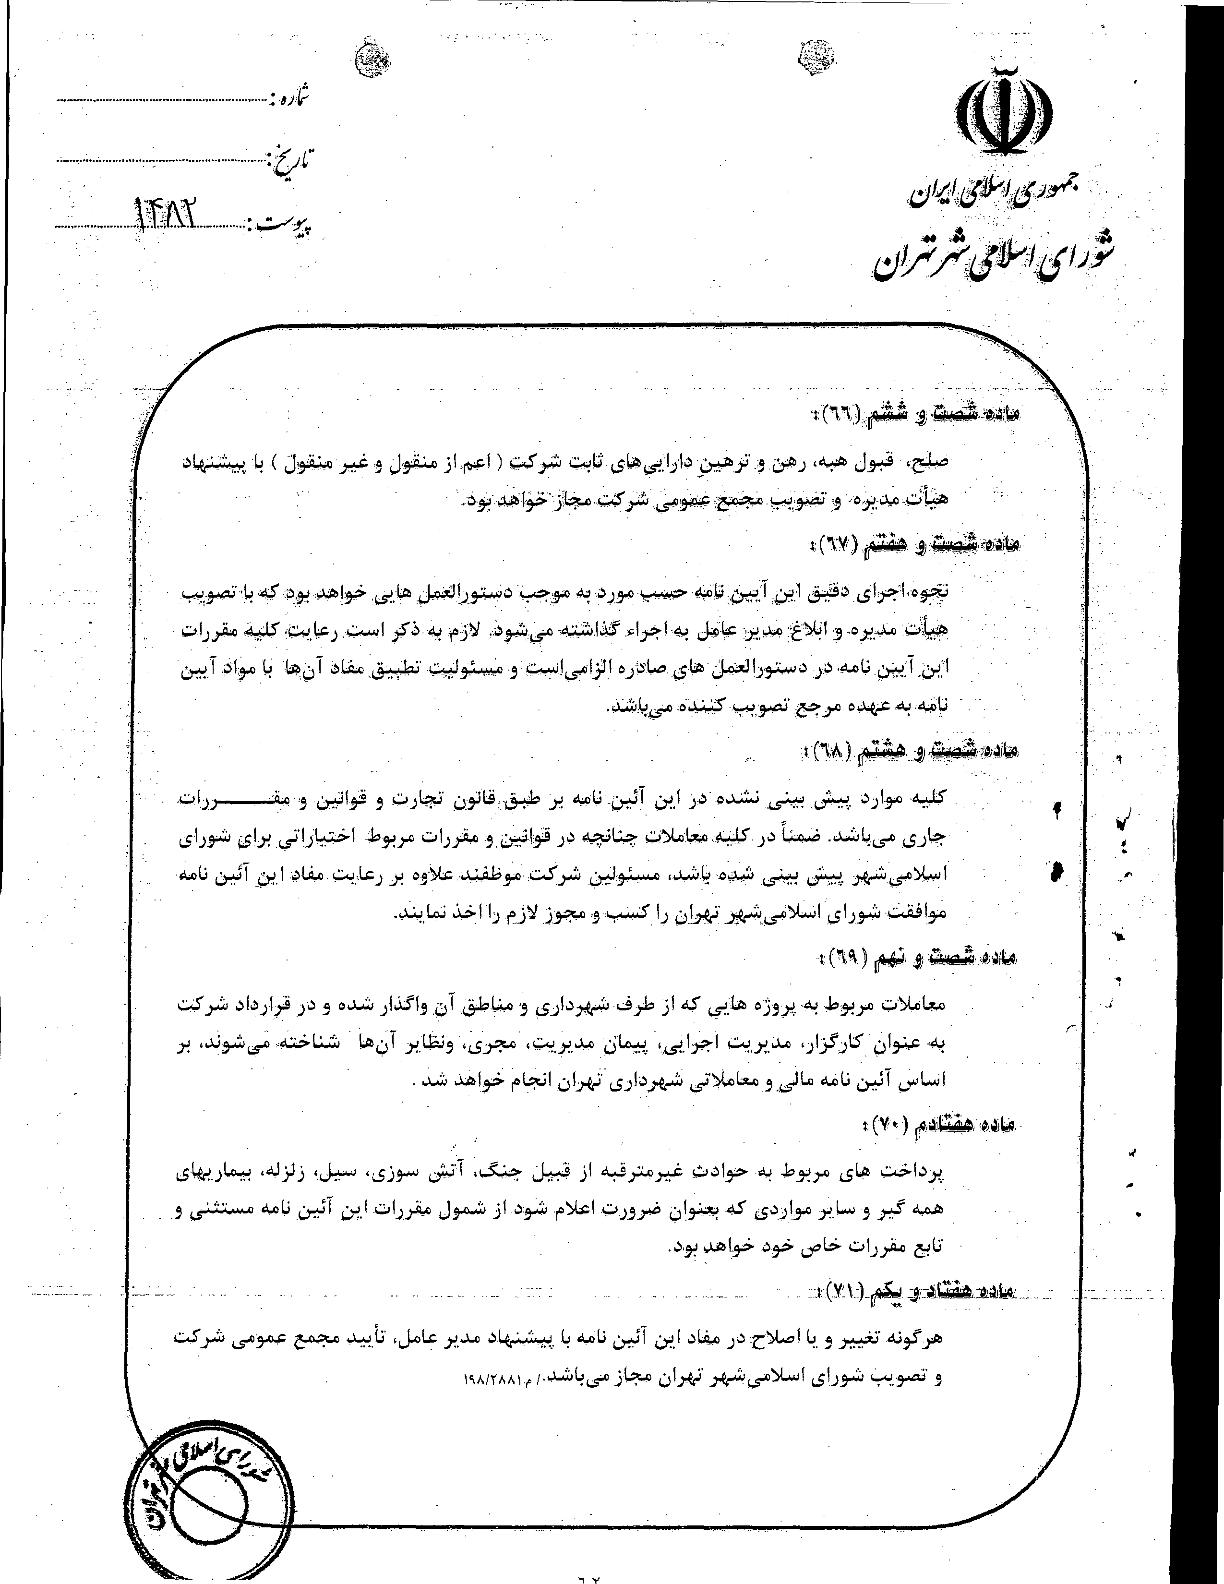 جمهوری اسلامی ایران
شورای اسلامی شهر تهران
شماره :
تاریخ :
پیوست : ۱۴۸۲
ماده شصت و ششم (۶۶):
صلح، قبول هبه، رهن و ترهین دارایی‌های ثابت شرکت ( اعم از منقول و غیر منقول ) با پیشنهاد
هیأت مدیره و تصویب مجمع عمومی شرکت مجاز خواهد بود.
ماده شصت و هفتم (۶۷):
نحوه اجرای دقیق این آیین نامه حسب مورد به موجب دستورالعمل هایی خواهد بود که با تصویب
هیأت مدیره و ابلاغ مدیر عامل به اجراء گذاشته می‌شود. لازم به ذکر است رعایت کلیه مقررات
این آیین نامه در دستورالعمل های صادره الزامی‌است و مسئولیت تطبیق مفاد آن‌ها با مواد آیین
نامه به عهده مرجع تصویب کننده می‌باشد.
ماده شصت و هشتم (۶۸):
کلیه موارد پیش بینی نشده در این آئین نامه بر طبق قانون تجارت و قوانین و مقـــــررات
جاری می‌باشد. ضمناً در کلیه معاملات چنانچه در قوانین و مقررات مربوط اختیاراتی برای شورای
اسلامی‌شهر پیش بینی شده باشد، مسئولین شرکت موظفند علاوه بر رعایت مفاد این آئین نامه
موافقت شورای اسلامی‌شهر تهران را کسب و مجوز لازم را اخذ نمایند.
ماده شصت و نهم (۶۹):
معاملات مربوط به پروژه هایی که از طرف شهرداری و مناطق آن واگذار شده و در قرارداد شرکت
به عنوان کارگزار، مدیریت اجرایی، پیمان مدیریت، مجری، ونظایر آن‌ها شناخته می‌شوند، بر
اساس آئین نامه مالی و معاملاتی شهرداری تهران انجام خواهد شد .
ماده هفتادم (۷۰):
پرداخت های مربوط به حوادث غیرمترقبه از قبیل جنگ، آتش سوزی، سیل، زلزله، بیماریهای
همه گیر و سایر مواردی که بعنوان ضرورت اعلام شود از شمول مقررات این آئین نامه مستثنی و
تابع مقررات خاص خود خواهد بود.
ماده هفتاد و یکم (۷۱):
هرگونه تغییر و یا اصلاح در مفاد این آئین نامه با پیشنهاد مدیر عامل، تأیید مجمع عمومی شرکت
و تصویب شورای اسلامی‌شهر تهران مجاز می‌باشد./ م.۱۹۸/۲۸۸۱
شورای اسلامی شهر تهران